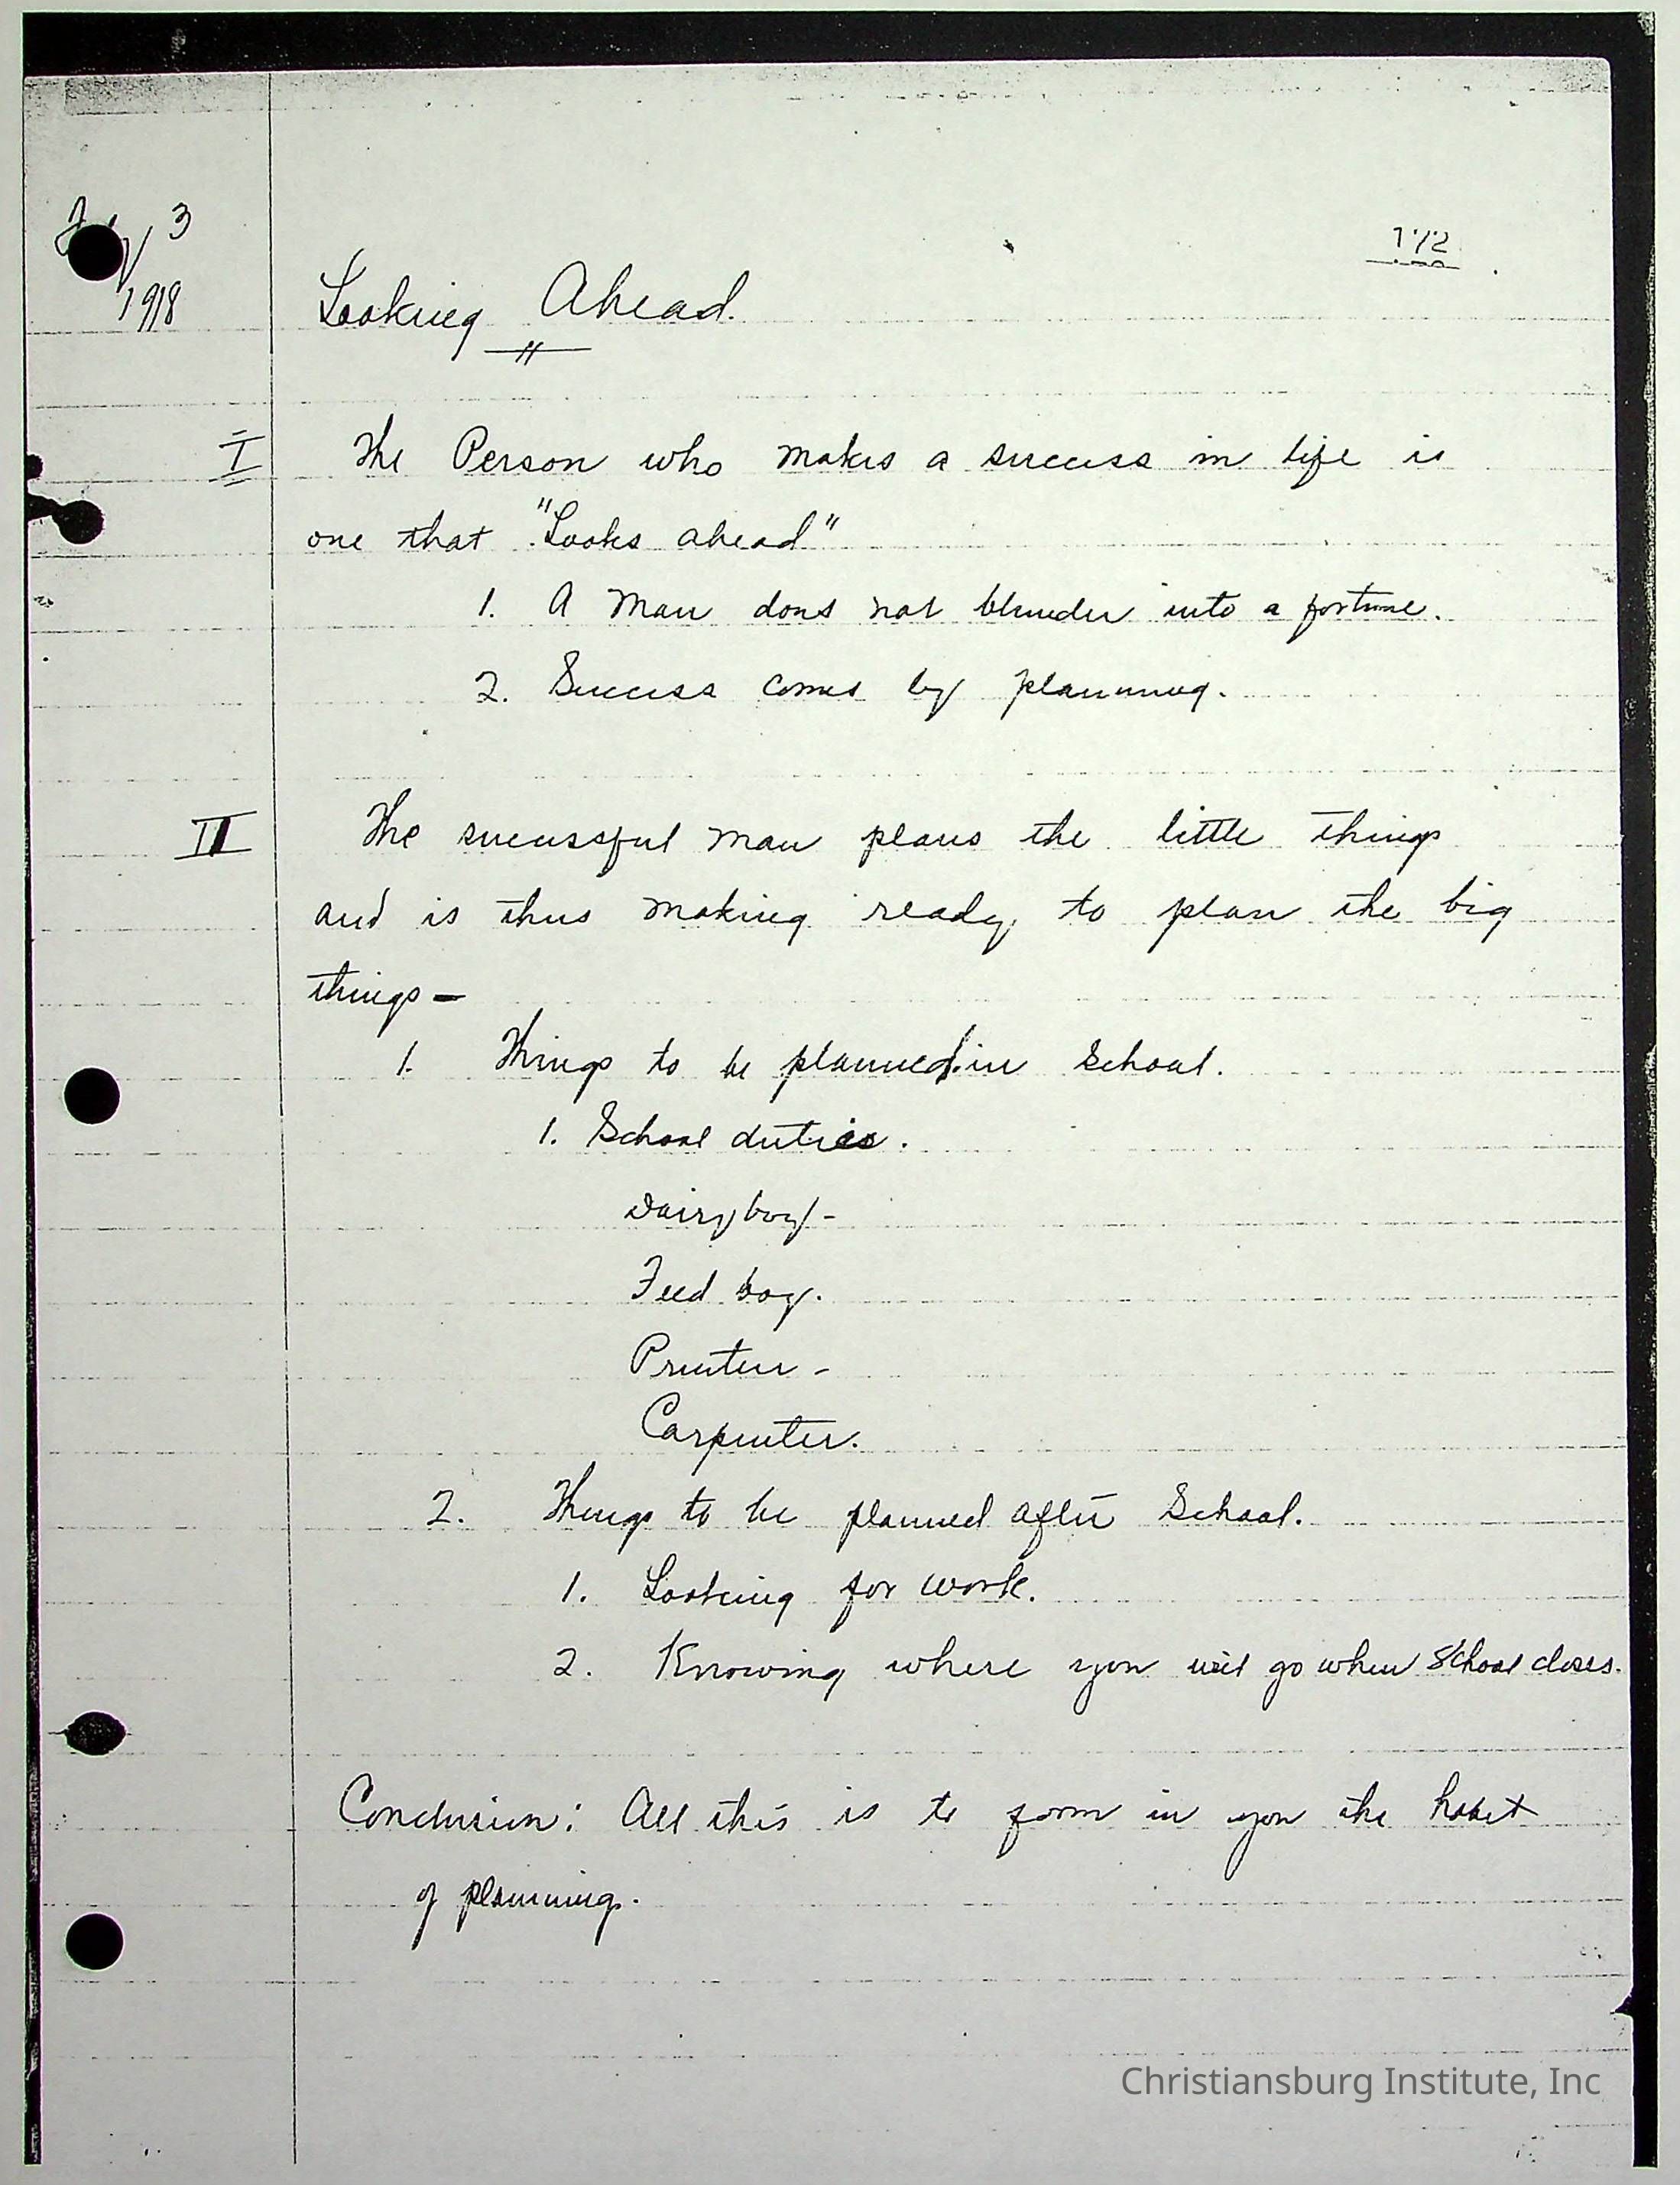 3
172
1918
Looking Ahead.
I The Person who makes a success in life is
one that "Looks ahead"
1. A man dons not blunder into a fortune.
2. Success comes by planning.
II The sucessful man plans the little things
and is thus making ready to plan the big
things-
1. Things to be planned in School.
1. School duties.
Dairy boy-
Feed boy.
Printer-
Carpenter.
2. Things to be planned after School.
1. Looking for work.
2. Knowing where you will go when School closes.
Conclusion: All this is to form in you the habit
of planning.
Christiansburg Institute, Inc